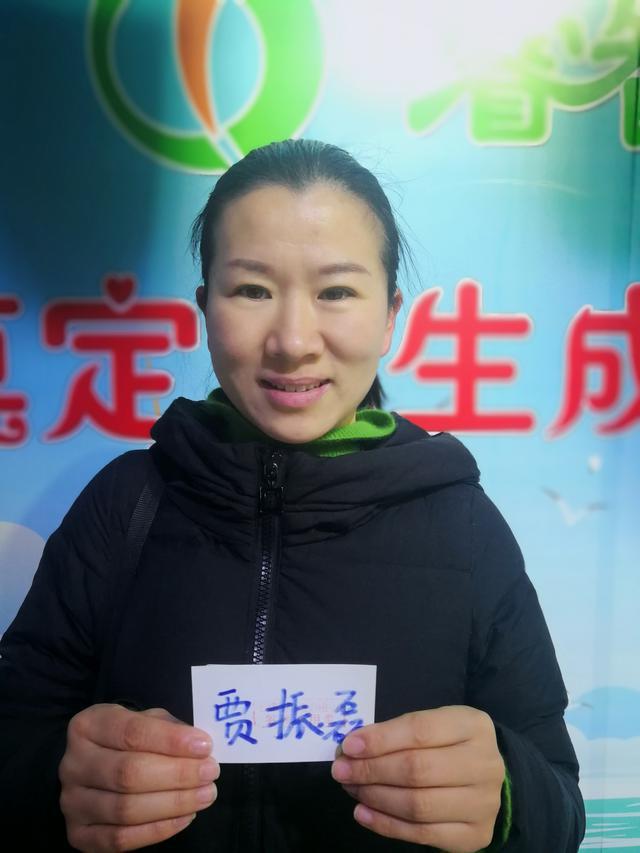 春
定 生 成
贾振磊